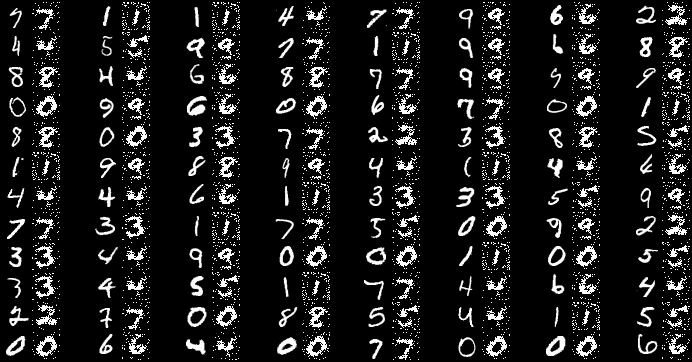 7 7 1 1 1 1 4 4 7 7 9 9 6 6 2 2
4 4 5 5 9 9 7 7 1 1 9 9 6 6 8 8
8 8 4 4 6 6 8 8 7 7 9 9 9 9 9 9
0 0 9 9 6 6 0 0 6 6 7 7 0 0 1 1
8 8 0 0 3 3 7 7 2 2 3 3 8 8 5 5
1 1 9 9 8 8 9 9 4 4 1 1 4 4 6 6
4 4 4 4 6 6 1 1 3 3 3 3 5 5 9 9
7 7 3 3 1 1 7 7 5 5 0 0 9 9 2 2
3 3 4 4 9 9 0 0 0 0 1 1 0 0 5 5
3 3 4 4 5 5 1 1 7 7 4 4 6 6 4 4
2 2 7 7 0 0 8 8 5 5 4 4 1 1 5 5
0 0 6 6 4 4 0 0 7 7 0 0 0 0 6 6